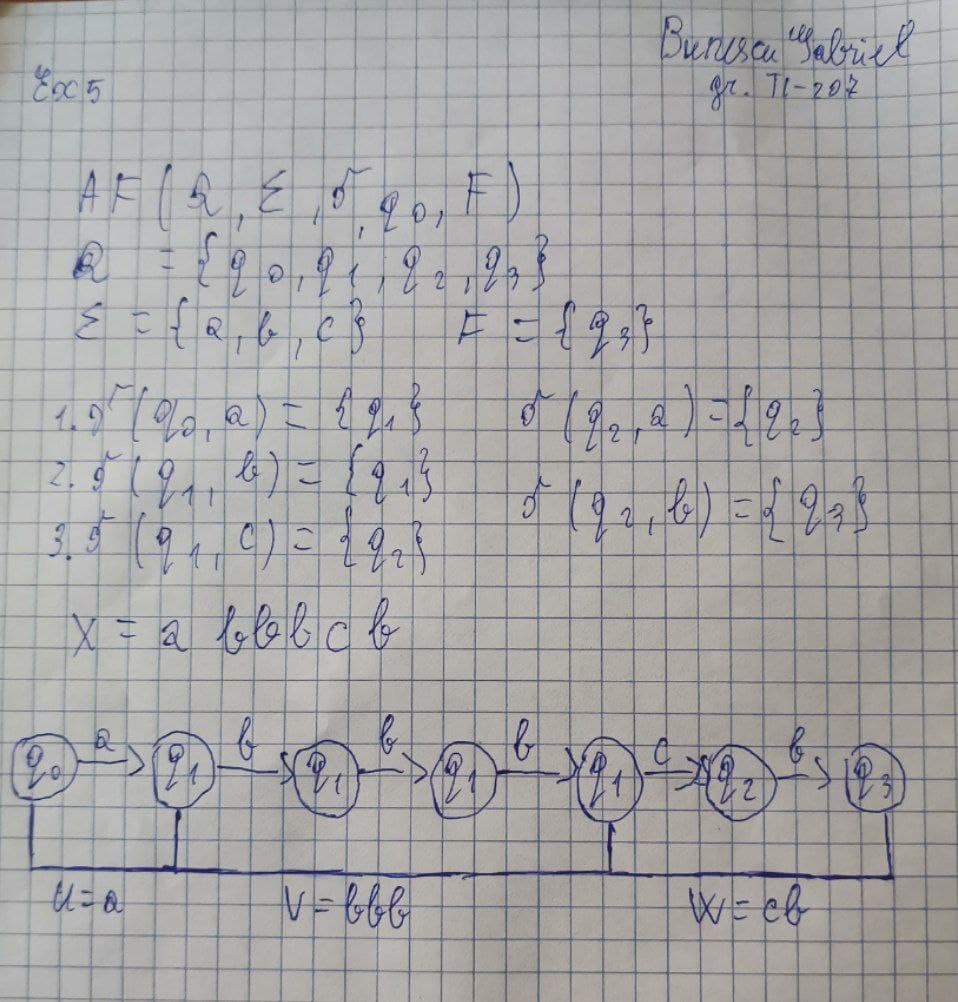 Ex 5
Bunescu Gabriel
gr. TI-207
AF(Q, Σ, δ, q0, F)
Q = {q0, q1, q2, q3}
Σ = {a, b, c} F = {q3}
1. δ(q0, a) = {q1} δ(q2, a) = {q2}
2. δ(q1, b) = {q1} δ(q2, b) = {q3}
3. δ(q1, c) = {q2}
X = a bbb c b
q0 a q1 b q1 b q1 b q1 c q2 b q3
U=a V=bbb W=cb